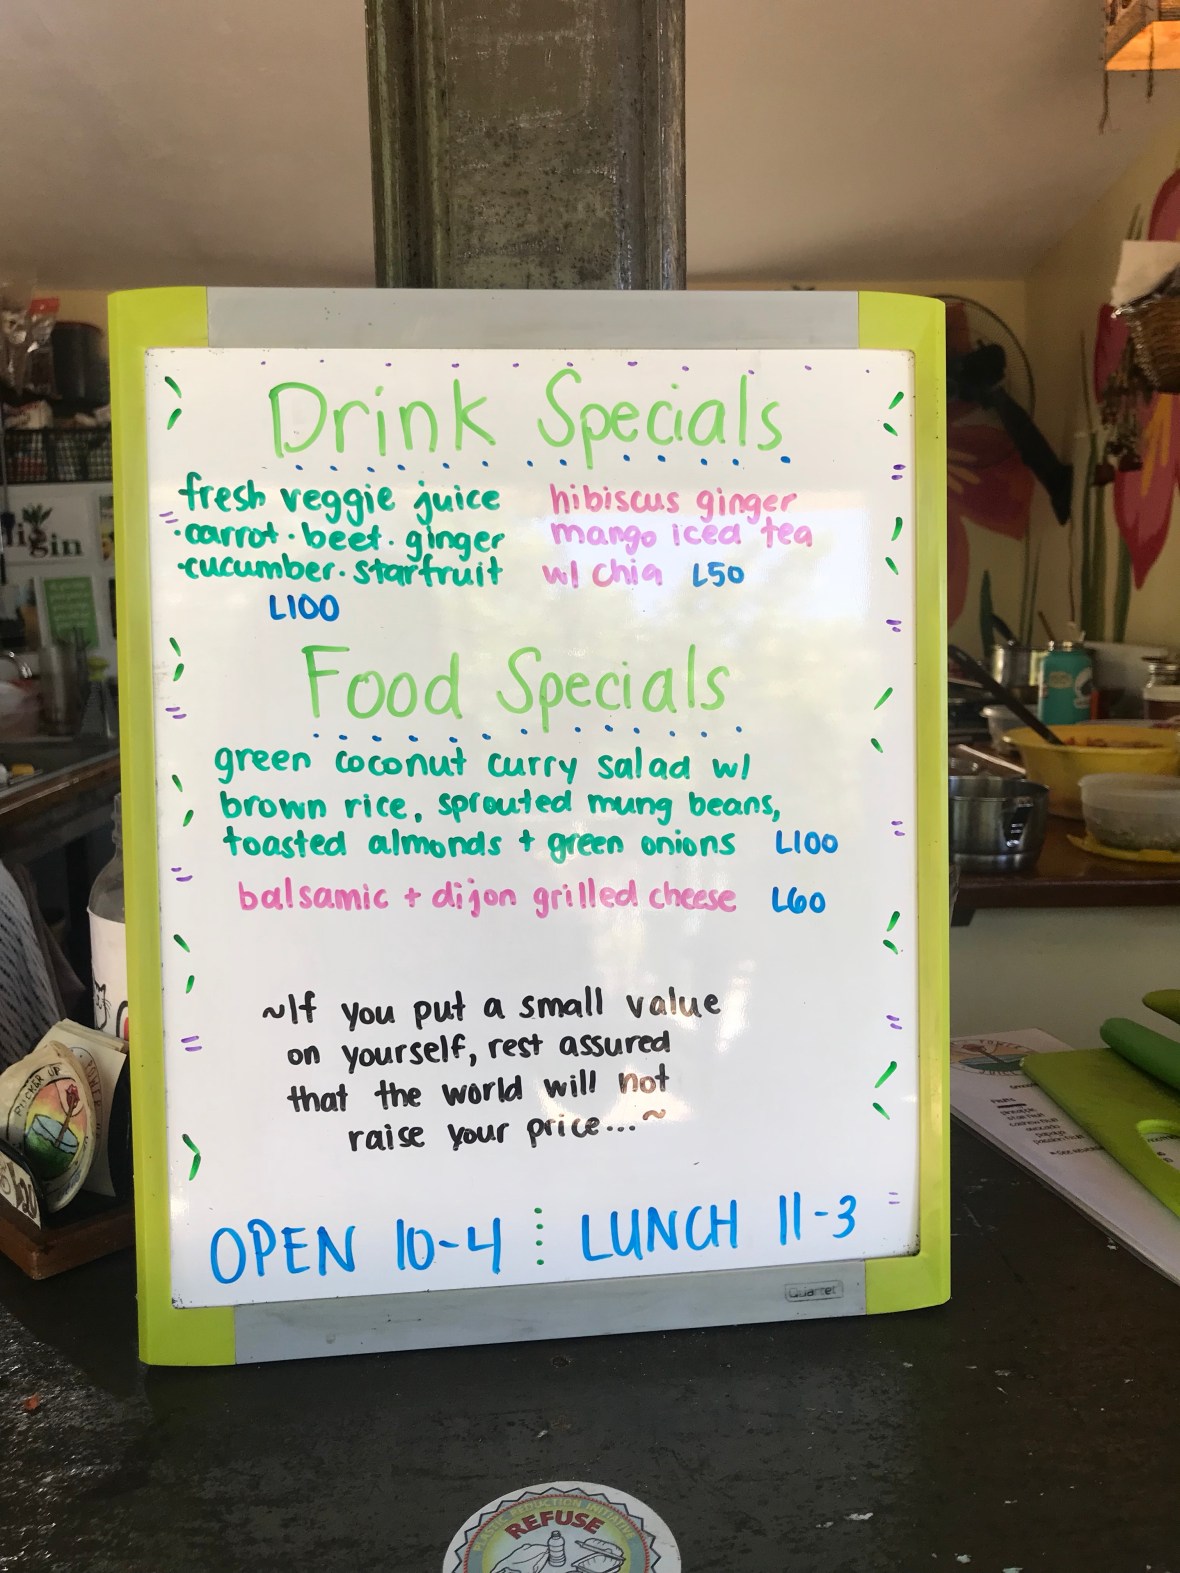 Drink Specials
fresh veggie juice
·carrot·beet·ginger
·cucumber·starfruit
L100
hibiscus ginger
mango iced tea
w/ chia L50
Food Specials
green coconut curry salad w/
brown rice, sprouted mung beans,
toasted almonds + green onions L100
balsamic + dijon grilled cheese L60
~If you put a small value
on yourself, rest assured
that the world will not
raise your price...~
OPEN 10-4 LUNCH 11-3
Quartet
PUCKER UP
PLASTIC REDUCTION INITIATIVE
REFUSE